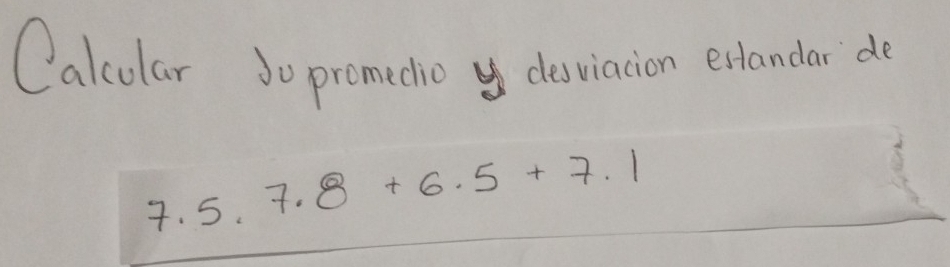 Calcular Su promedio y desviacion estandar de
7.5. 7.8 + 6.5 + 7.1